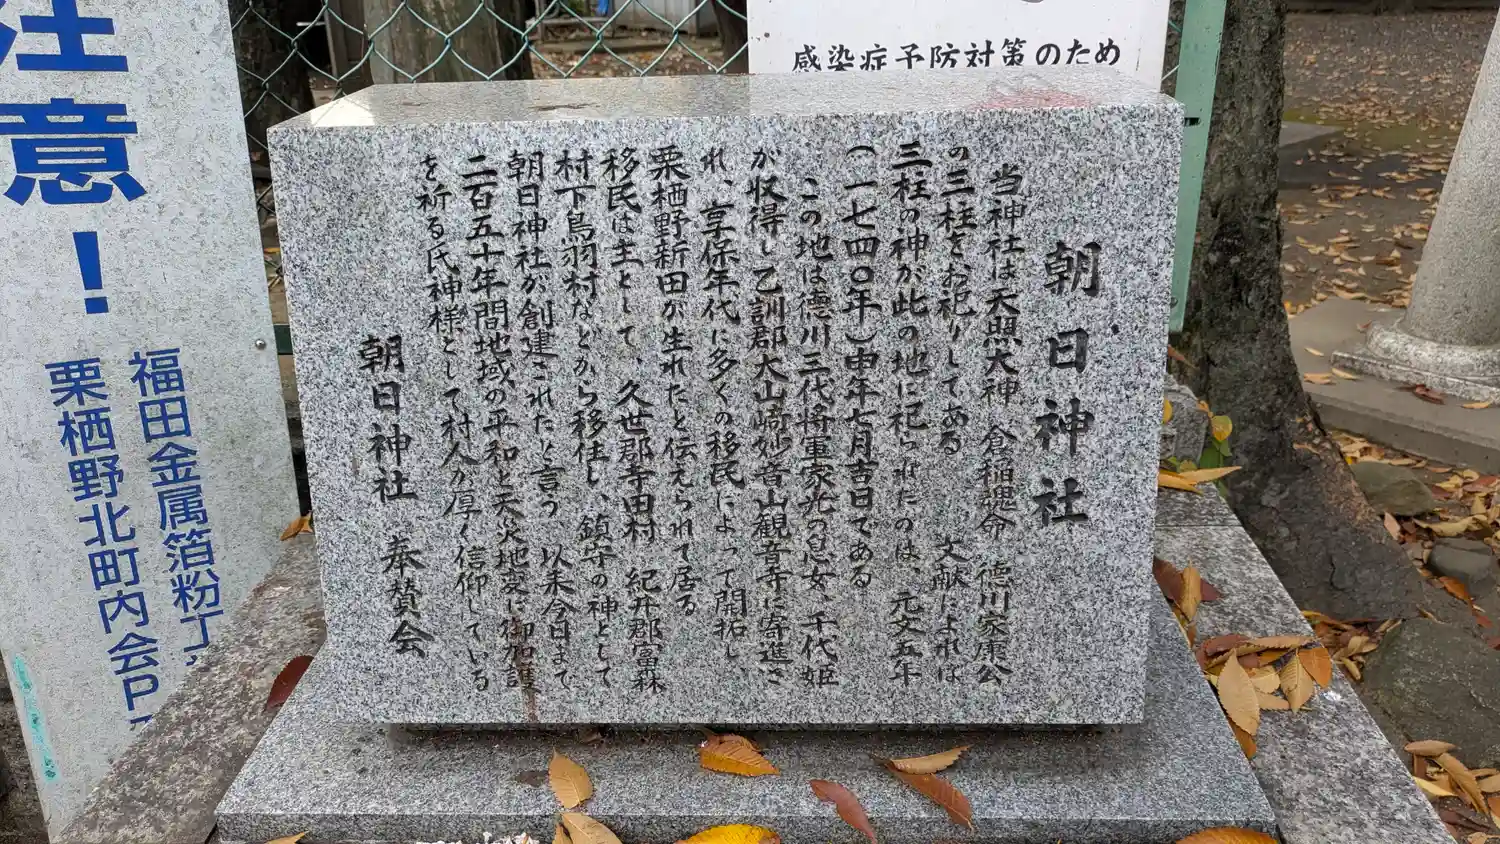 朝日神社
当神社は天照大神 倉稲魂命 徳川家康公
の三柱をお祀りしてある 文献によれば
三柱の神が此の地に祀られたのは、元文五年
(一七四〇年)申年七月吉日である
この地は徳川三代将軍家光の息女、千代姫
が収得し乙訓郡大山崎妙音山観音寺に寄進さ
れ、享保年代に多くの移民によって開拓し、
栗栖野新田が生れたと伝えられて居る
移民は主として、久世郡寺田村 紀井郡富森
村下鳥羽村などから移住し、鎮守の神として
朝日神社が創建されたと言う 以来今日まで
二百五十年間地域の平和と天災地変に御加護
を祈る氏神様として村人が厚く信仰している
朝日神社 奉賛会
感染症予防対策のため
注意!
福田金属箔粉工
栗栖野北町内会P